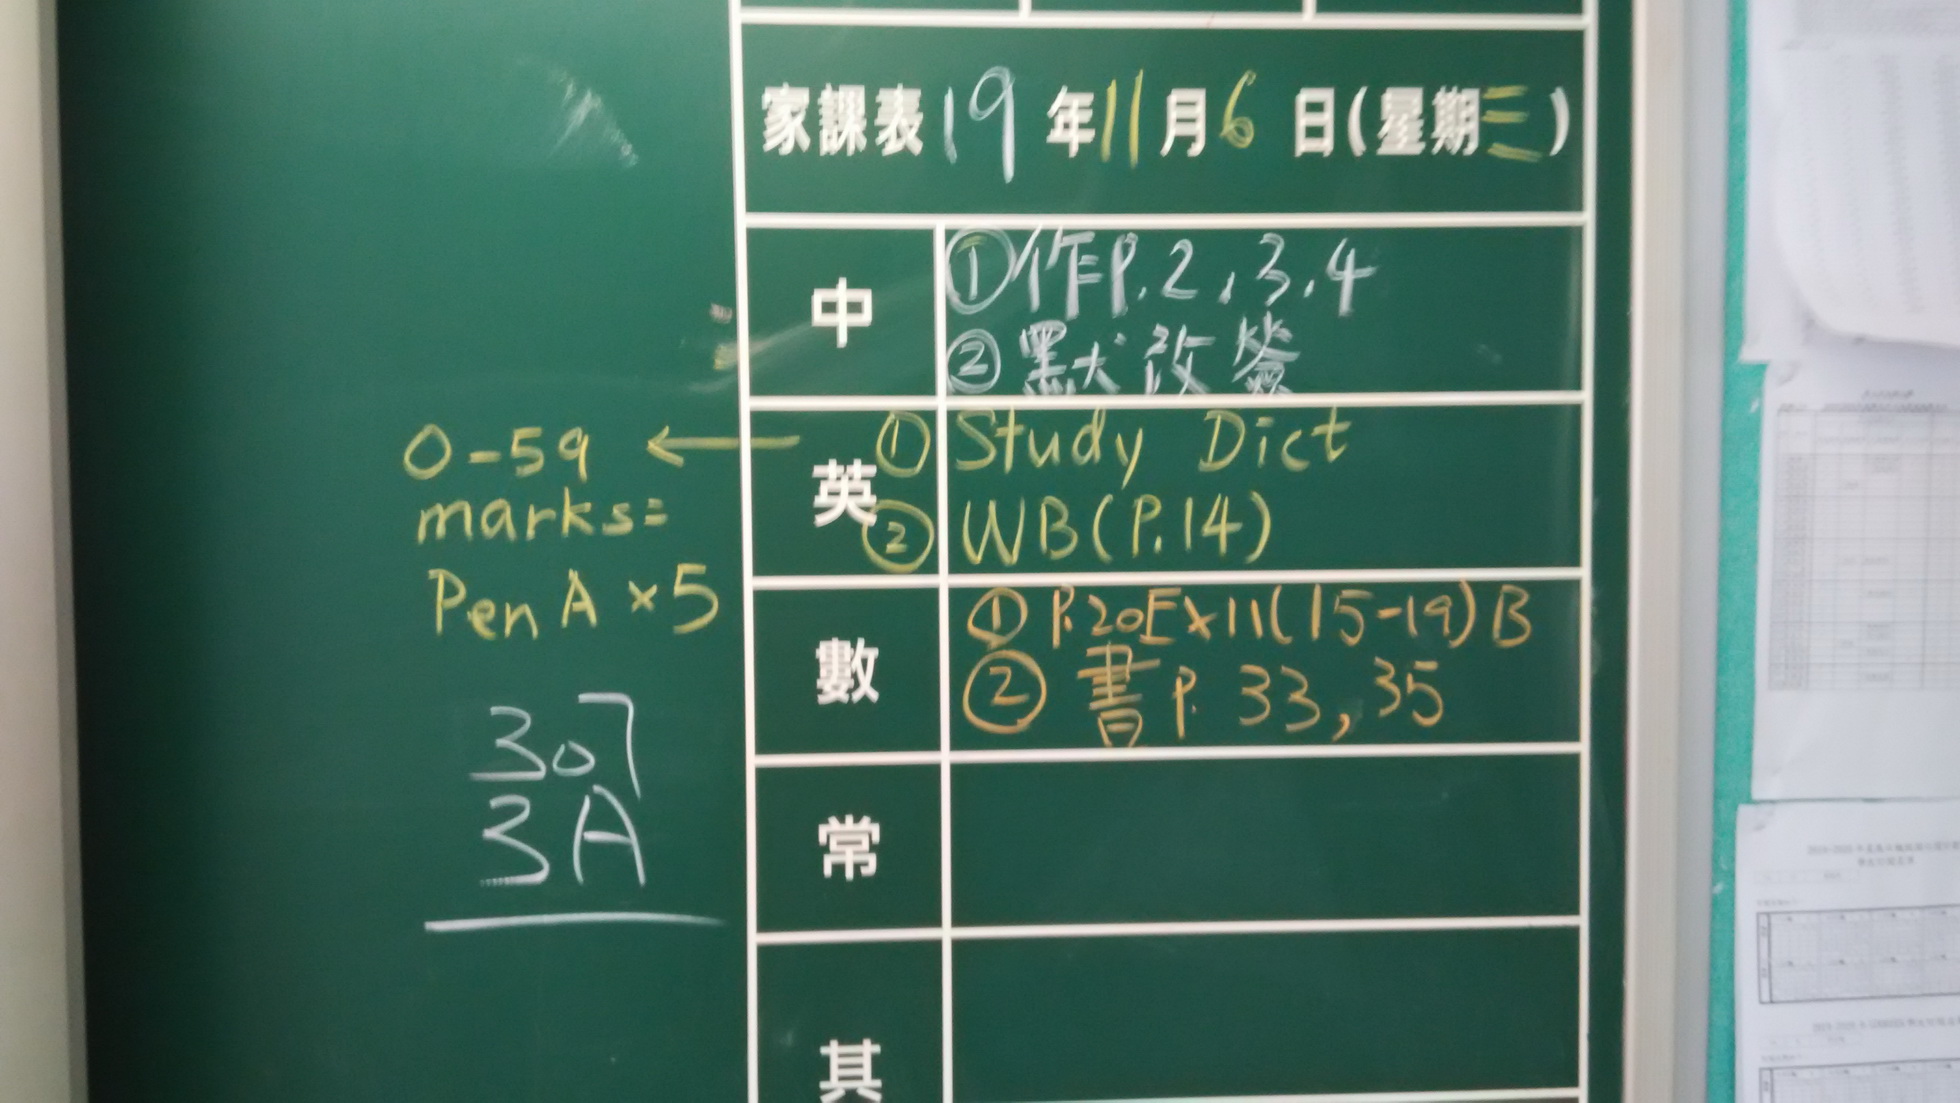 家課表 19 年 11 月 6 日(星期三)
中
①作P.2,3,4
②默改簽
英
① Study Dict
② WB(P.14)
0-59
marks=
Pen A x5
數
① P.20Ex11(15-19)B
② 書P. 33,35
307
3A
常
其